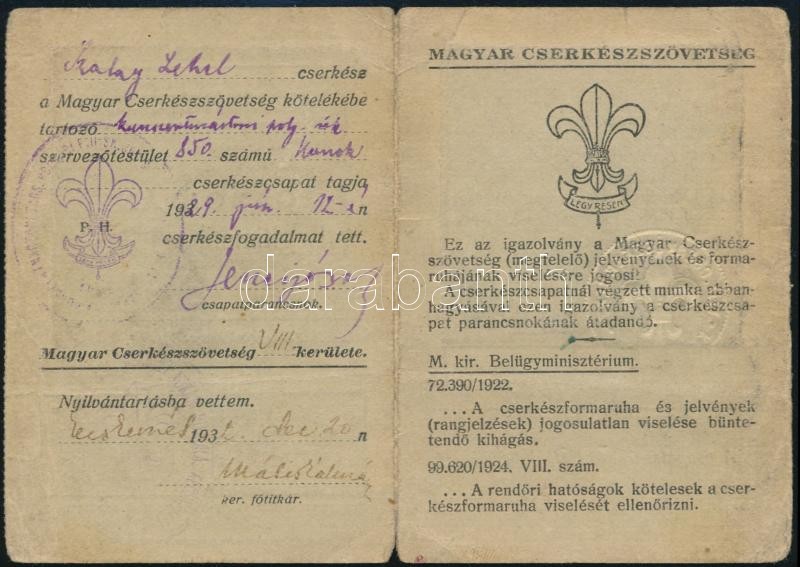 Kalay Lehel cserkész
a Magyar Cserkészszövetség kötelékébe
tartozó kunszentmártoni polg. isk.
szervezőtestület 850. számú Kunok
cserkészcsapat tagja,
1929. jún. 12-én
P. H.
cserkészfogadalmat tett.
csapatparancsnok.
Magyar Cserkészszövetség VIII kerülete.
Nyilvántartásba vettem.
Kecskemét 1932. dec 20 n
ker. főtitkár.
MAGYAR CSERKÉSZSZÖVETSÉG
LÉGY RÉSEN
Ez az igazolvány a Magyar Cserkész-
szövetség (megfelelő) jelvényének és forma-
ruhájának viselésére jogosit.
A cserkészcsapatnál végzett munka abban-
hagyásával ezen igazolvány a cserkészcsa-
pat parancsnokának átadandó.
M. kir. Belügyminisztérium.
72.390/1922.
... A cserkészformaruha és jelvények
(rangjelzések) jogosulatlan viselése bünte-
tendő kihágás.
99.620/1924. VIII. szám.
... A rendőri hatóságok kötelesek a cser-
készformaruha viselését ellenőrizni.
darabanth.com